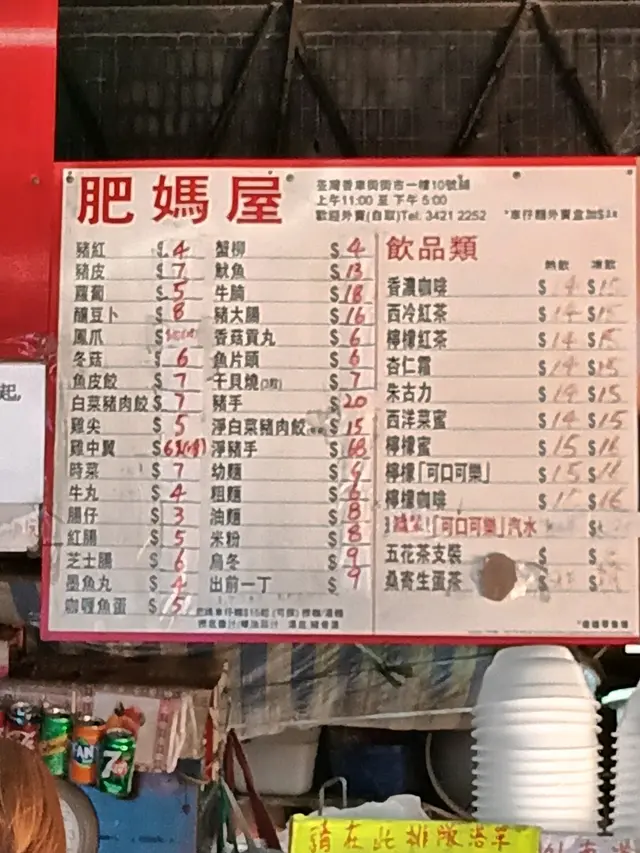 肥媽屋
荃灣香車街街市一樓10號舖
上午11:00 至 下午 5:00
歡迎外賣(自取)Tel: 3421 2252 *車仔麵外賣盒加$
豬紅 $ 4
豬皮 $ 7
蘿蔔 $ 5
釀豆卜 $ 8
鳳爪 $
冬菇 $ 6
魚皮餃 $ 7
白菜豬肉餃 $ 7
雞尖 $ 5
雞中翼 $
時菜 $ 7
牛丸 $ 4
腸仔 $ 3
紅腸 $ 5
芝士腸 $ 6
墨魚丸 $ 4
咖喱魚蛋 $ 5
蟹柳 $ 4
魷魚 $ 13
牛腩 $ 18
豬大腸 $ 16
香菇貢丸 $ 6
魚片頭 $ 6
干貝燒 $ 7
豬手 $ 20
淨白菜豬肉餃 $ 15
淨豬手 $ 68
幼麵 $
粗麵 $ 6
油麵 $ 8
米粉 $ 8
烏冬 $ 9
出前一丁 $ 9
飲品類
熱飲 凍飲
香濃咖啡 $ 14 $ 15
西冷紅茶 $ 14 $ 15
檸檬紅茶 $ 14 $ 15
杏仁霜 $ 14 $ 15
朱古力 $ 14 $ 15
西洋菜蜜 $ 14 $ 15
檸檬蜜 $ 15 $ 16
檸檬「可口可樂」 $ 15 $
檸檬咖啡 $ $ 16
「可口可樂」汽水
五花茶支裝 $ $
桑寄生蛋茶 $ $
起,
7
請在此排隊落單